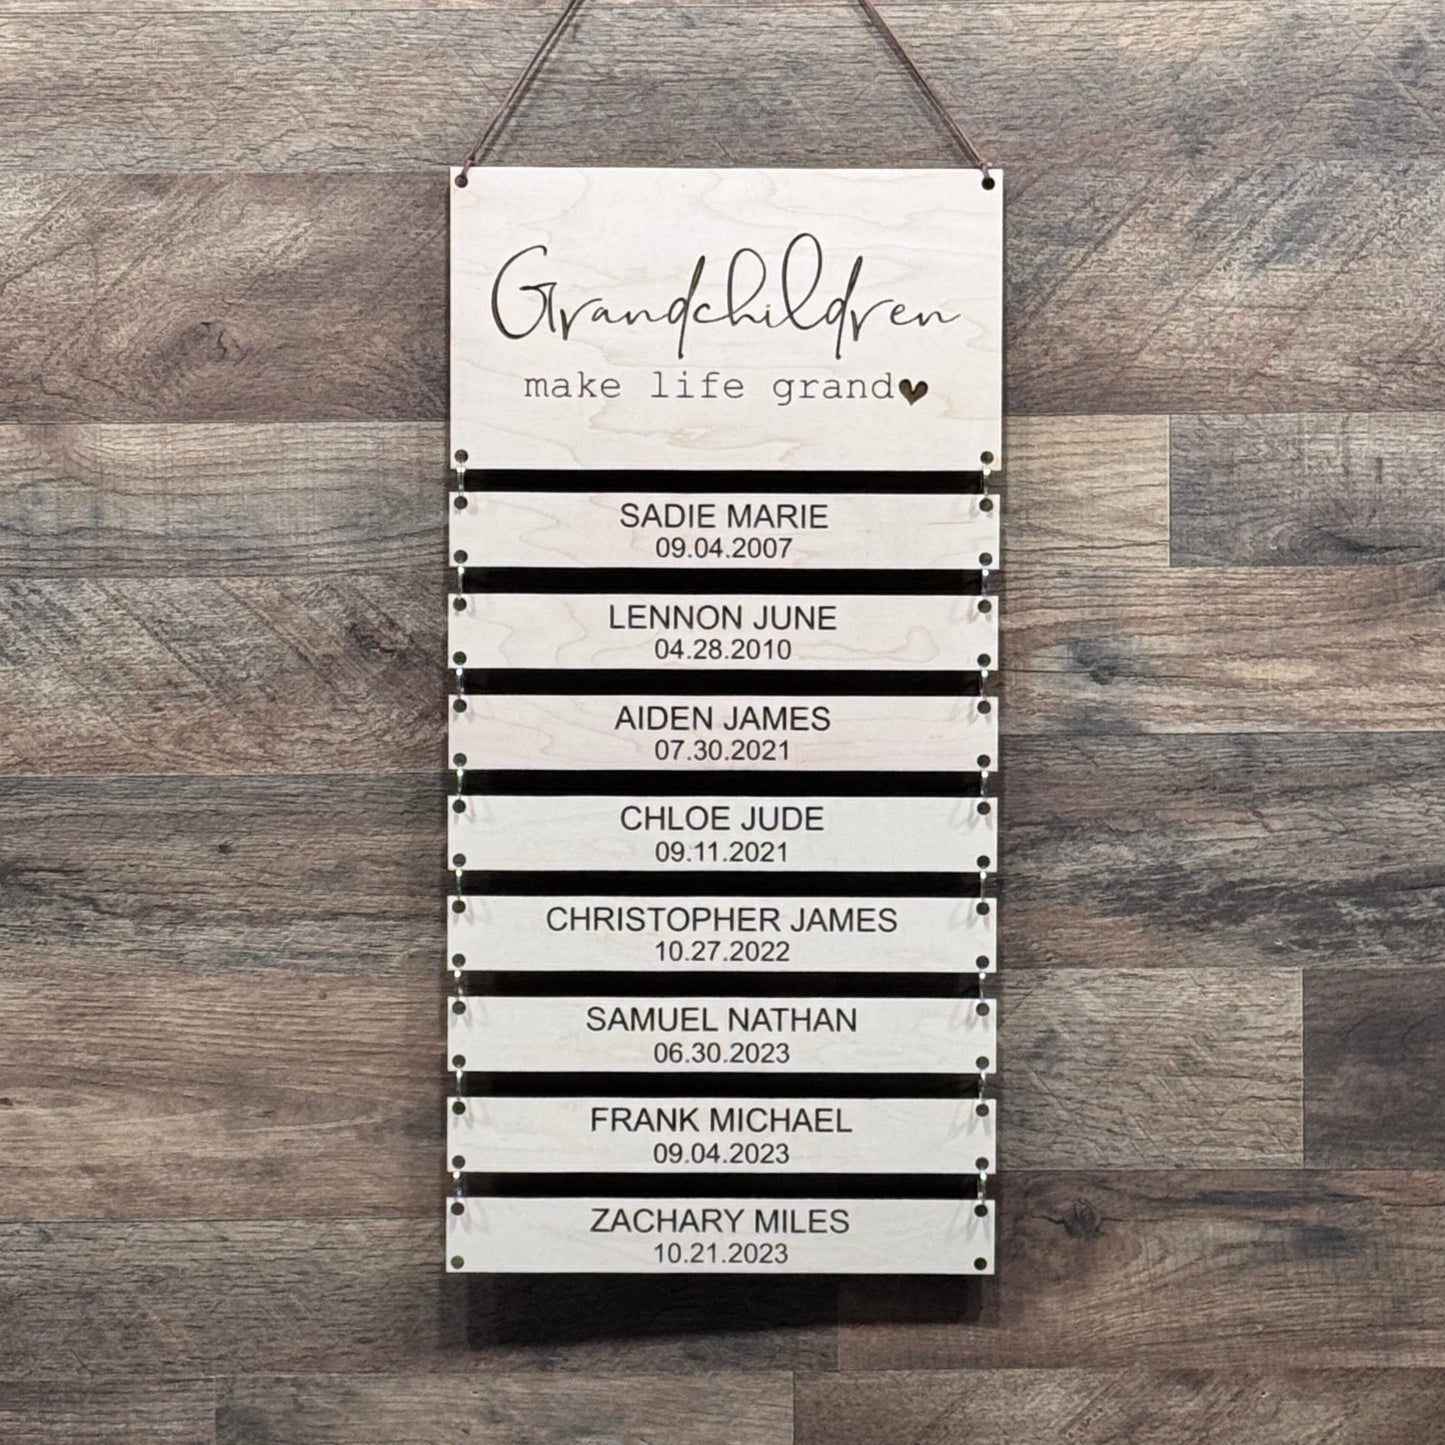 Grandchildren
make life grand
SADIE MARIE
09.04.2007
LENNON JUNE
04.28.2010
AIDEN JAMES
07.30.2021
CHLOE JUDE
09.11.2021
CHRISTOPHER JAMES
10.27.2022
SAMUEL NATHAN
06.30.2023
FRANK MICHAEL
09.04.2023
ZACHARY MILES
10.21.2023